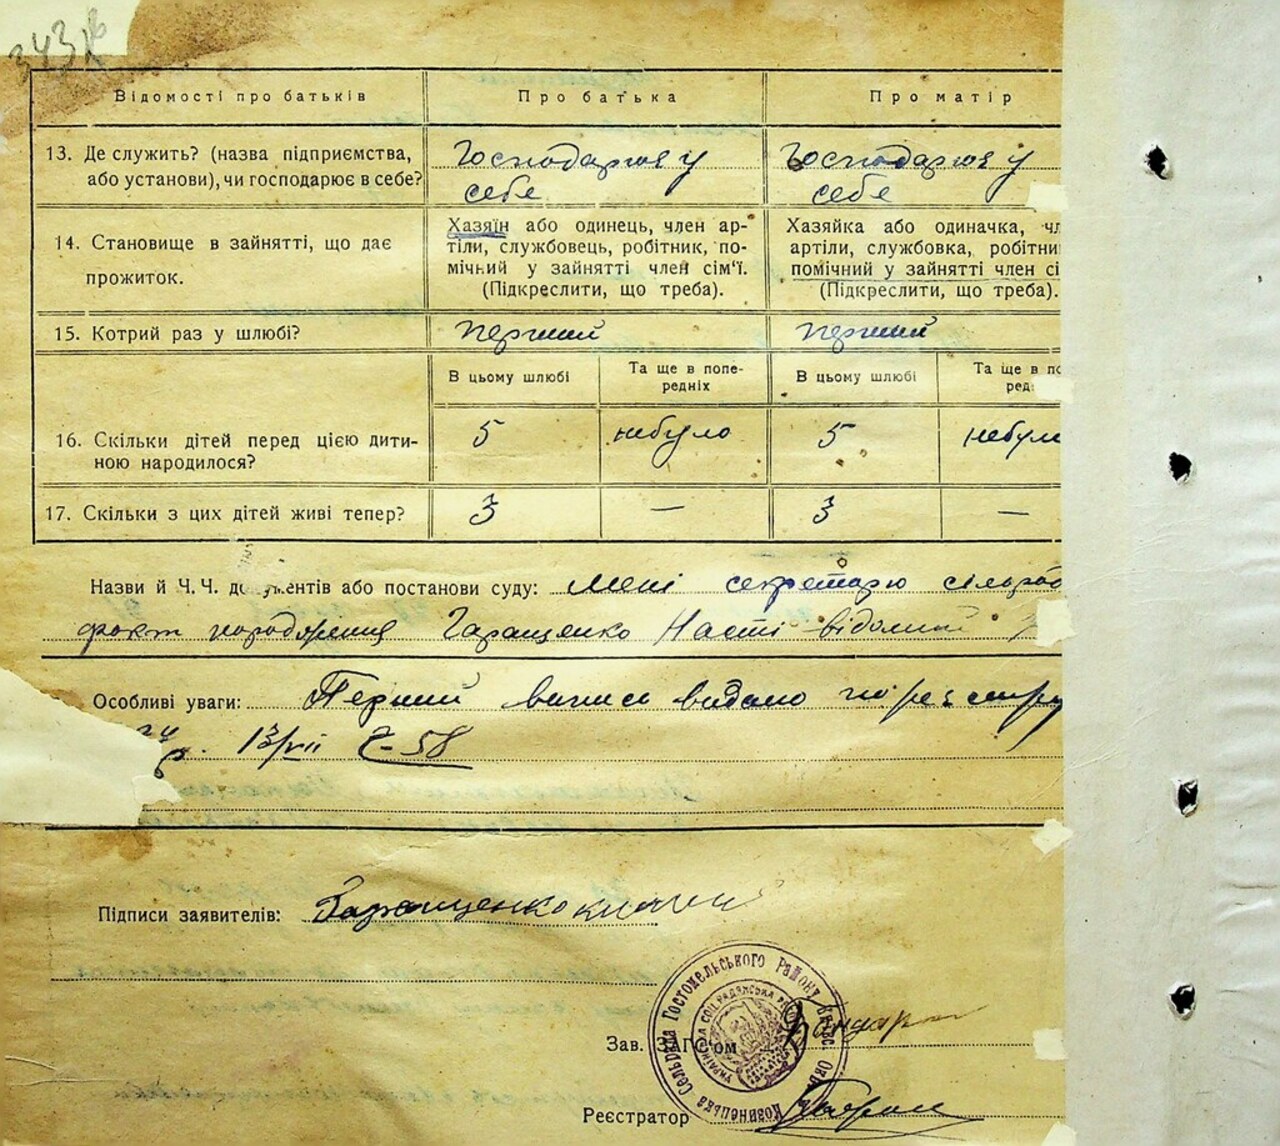 343
Відомості про батьків Про батька Про матір
13. Де служить? (назва підприємства, або установи), чи господарює в себе?
Господарює у себе
Господарює у себе
14. Становище в зайнятті, що дає прожиток.
Хазяїн або одинець, член ар-
тіли, службовець, робітник, по-
мічний у зайнятті член сім'ї.
(Підкреслити, що треба).
Хазяйка або одиначка, чл
артіли, службовка, робітни
помічний у зайнятті член сі
(Підкреслити, що треба).
15. Котрий раз у шлюбі? перший перший
В цьому шлюбі Та ще в попе-
редніх В цьому шлюбі Та ще в по
ред
16. Скільки дітей перед цією дити-
ною народилося? 5 небуло 5 небуло
17. Скільки з цих дітей живі тепер? 3 — 3 —
Назви й Ч. Ч. документів або постанови суду: Мені секретарю сільрад
факт народження Гаращенко Насті відомий
Особливі уваги: Перший випис видано по реєстру
13/VII Ч-58
Підписи заявителів: Гаращенко
Козинецька Сельрада Гостомельського Району Київс. Окр.
Українська Соц. Радянська
Зав. ЗАГС'ом
Реєстратор